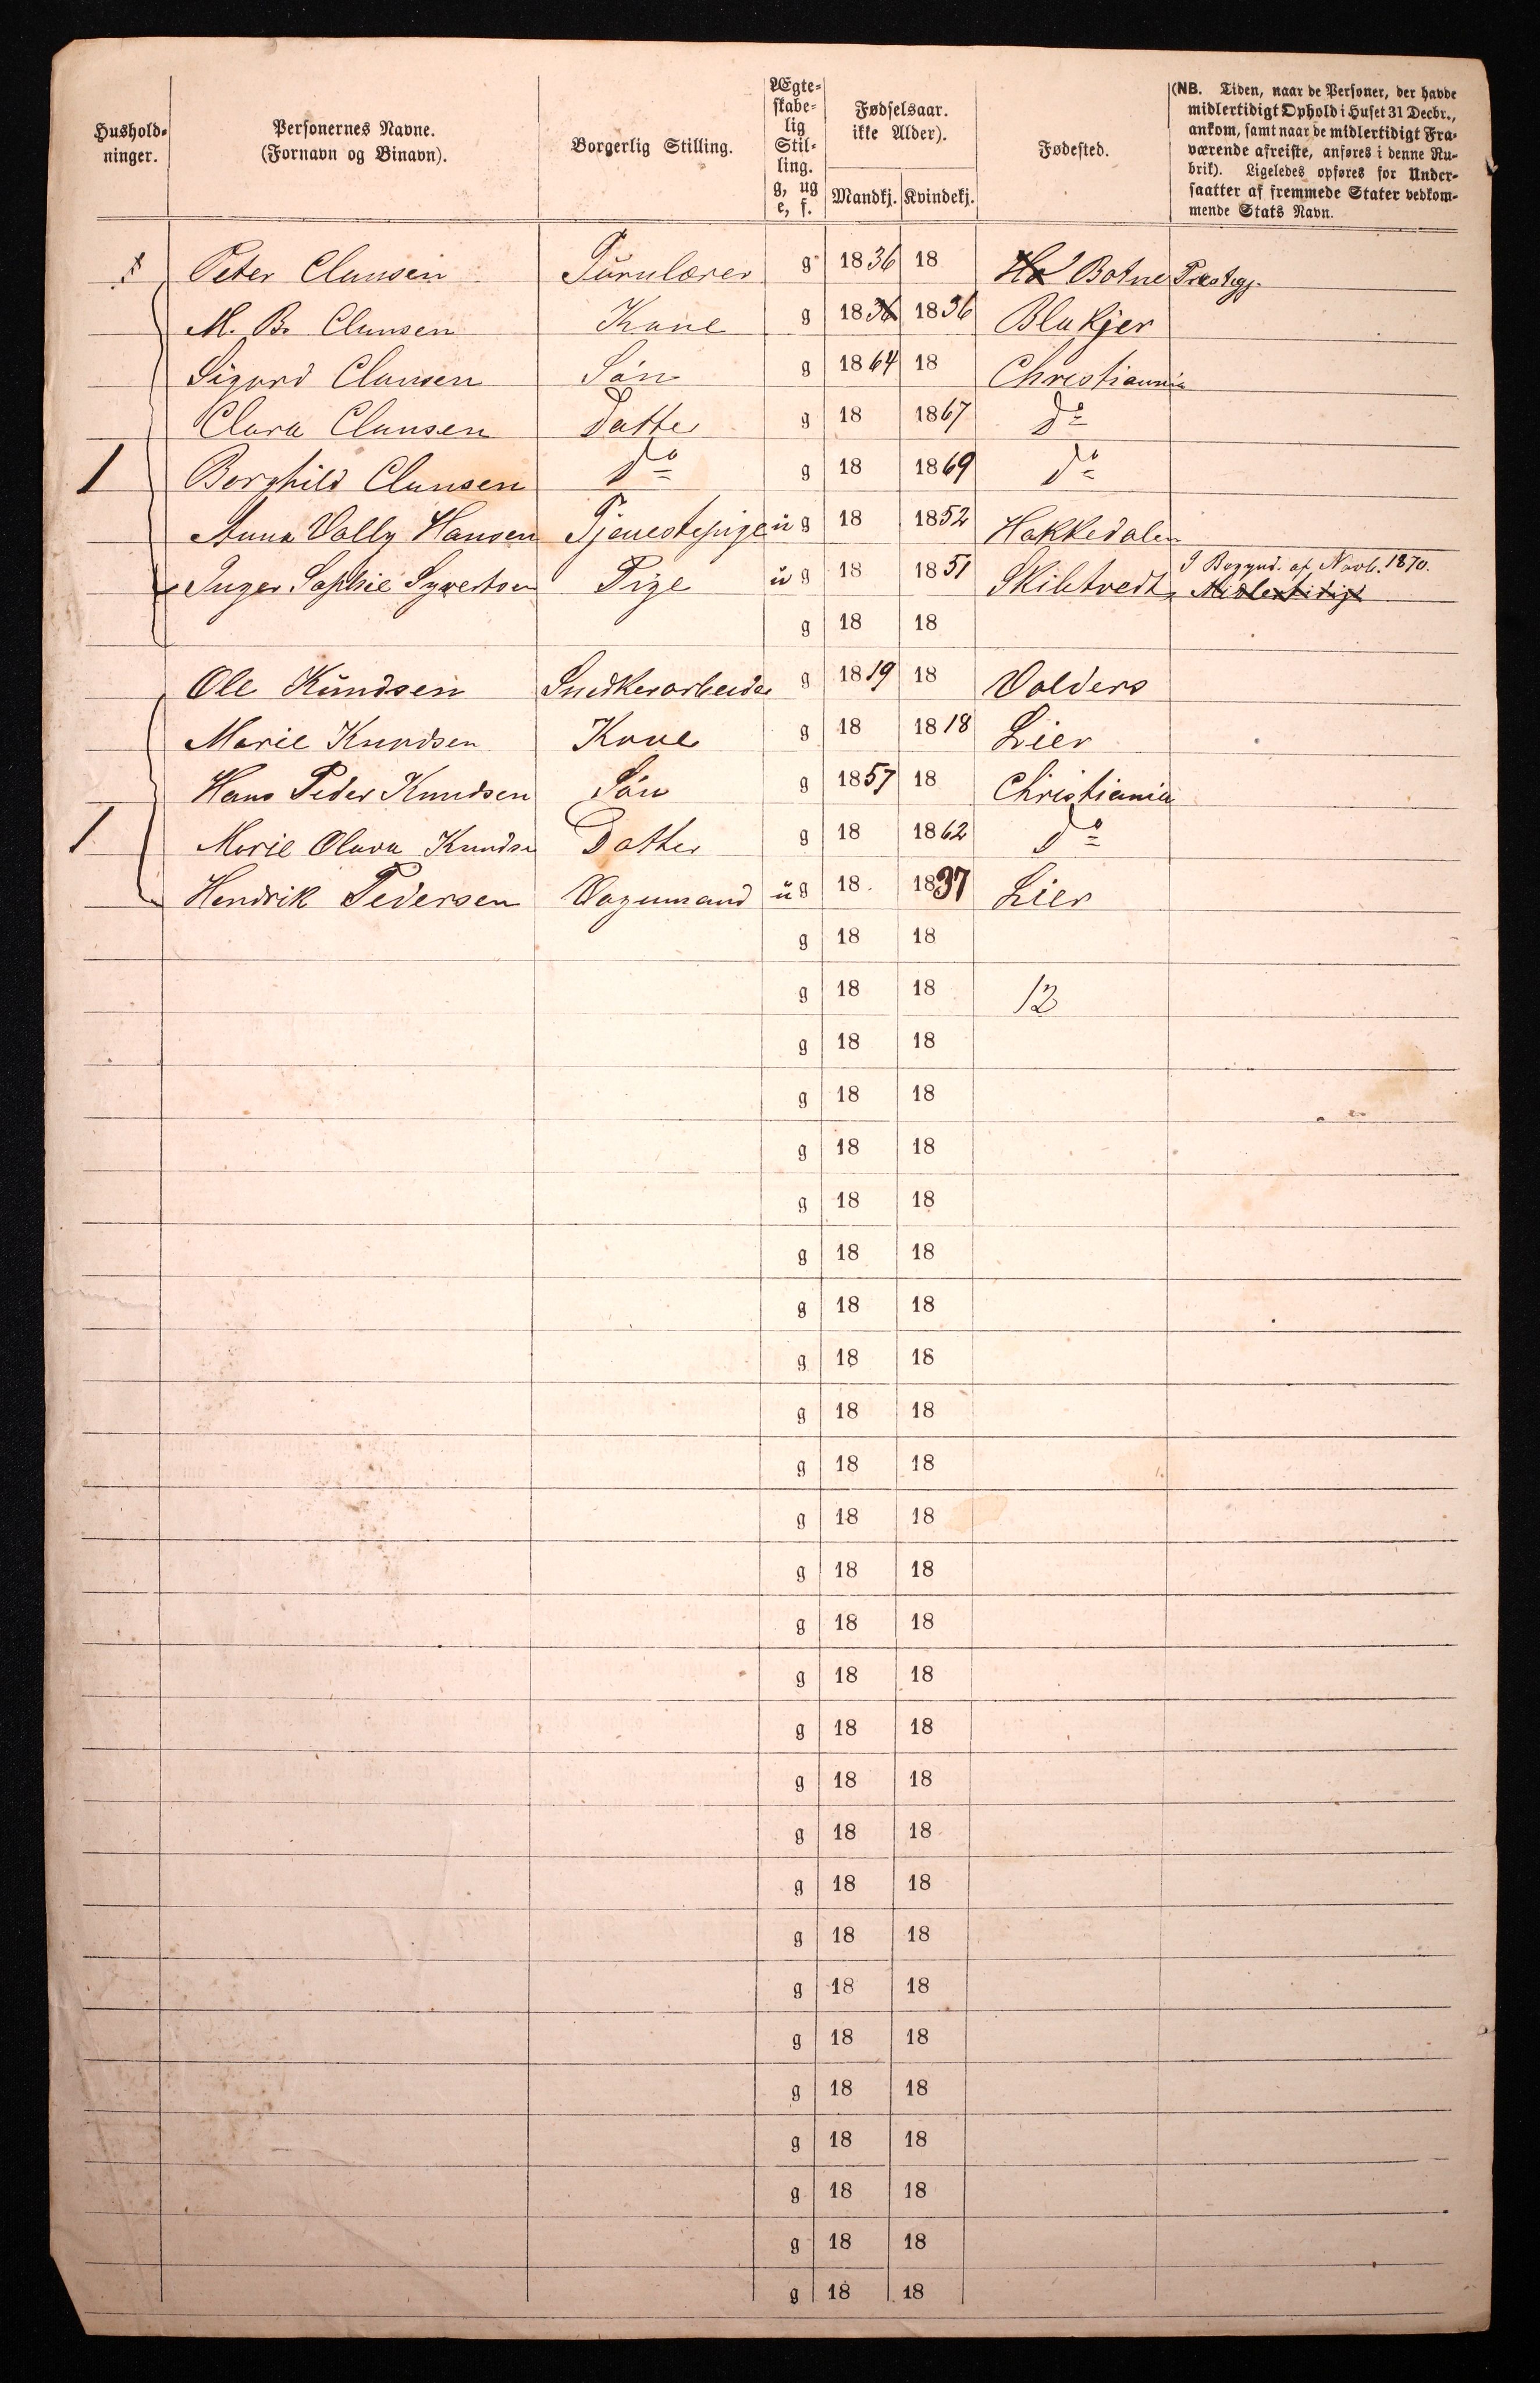 Hushold-
ninger.
Personernes Navne.
(Fornavn og Binavn).
Borgerlig Stilling.
Ægte-
skabe-
lig
Stil-
ling.
g, ug
e, f.
Fødselsaar.
ikke Alder).
Mandkj. Kvindekj.
Fødested.
(NB. Tiden, naar de Personer, der havde
midlertidigt Ophold i Huset 31 Decbr.,
ankom, samt naar de midlertidigt Fra-
værende afreiste, anføres i denne Ru-
brik). Ligeledes opføres for Under-
saatter af fremmede Stater vedkom-
mende Stats Navn.
Peter Clausen Turnlærer g 1836 18 Botne Præstegj.
M. B. Clausen Kone g 1836 1836 Blakjer
Sigurd Clausen Sön g 1864 18 Christiania
Clara Clausen Datter g 18 1867 do
1 Borghild Clausen do g 18 1869 do
Anna Vally Hansen Tjenestepige ug 18 1852 Hakkedalen
Inger Sophie Syvertsen Pige ug 18 1851 Skibtvedt I Begynd. af Novb. 1870.
Midlertidigt
g 18 18
Ole Knudsen Snedkerarbeider g 1819 18 Valders
Marie Knudsen Kone g 18 1818 Lier
Hans Peder Knudsen Sön g 1857 18 Christiania
1 Marie Olava Knudsen Datter g 18 1862 do
Hendrik Pedersen Vognmand ug 18 1837 Lier
g 18 18
g 18 18 12
g 18 18
g 18 18
g 18 18
g 18 18
g 18 18
g 18 18
g 18 18
g 18 18
g 18 18
g 18 18
g 18 18
g 18 18
g 18 18
g 18 18
g 18 18
g 18 18
g 18 18
g 18 18
g 18 18
g 18 18
g 18 18
g 18 18
g 18 18
g 18 18
g 18 18